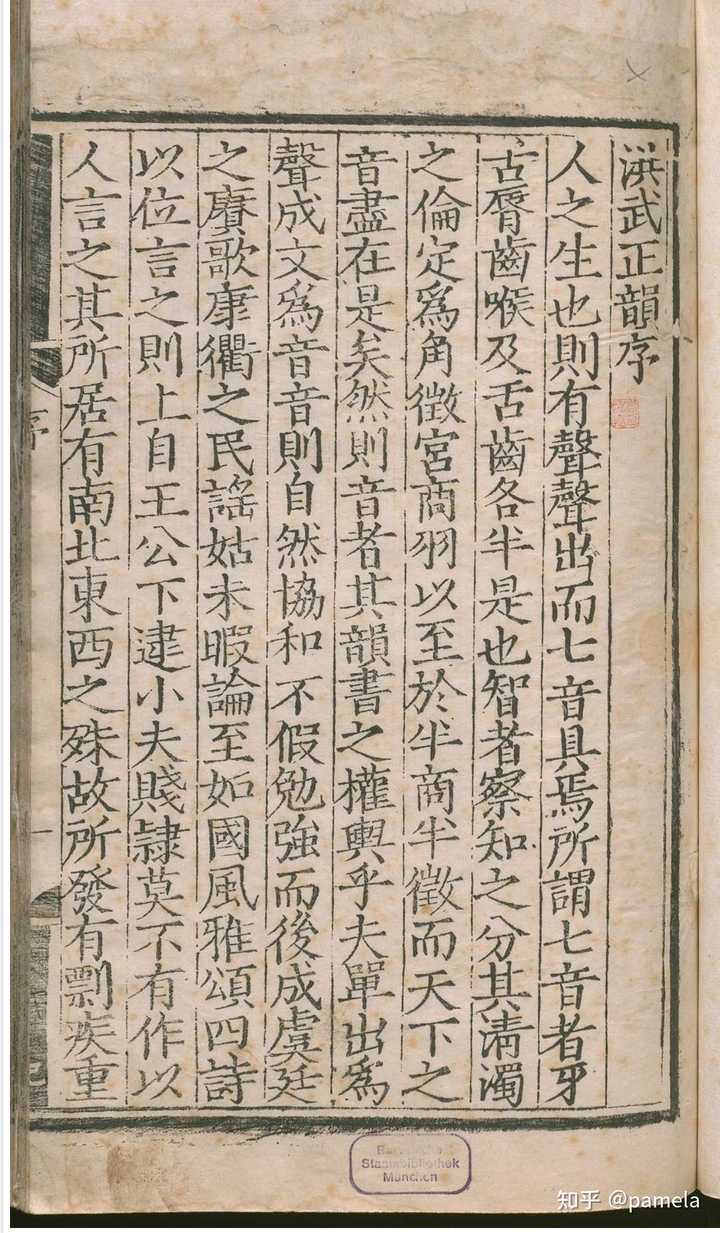 洪武正韻序
人之生也則有聲聲出而七音具焉所謂七音者牙
舌脣齒喉及舌齒各半是也智者察知之分其清濁
之倫定爲角徵宮商羽以至於半商半徵而天下之
音盡在是矣然則音者其韻書之權輿乎夫單出爲
聲成文爲音音則自然協和不假勉強而後成虞廷
之賡歌康衢之民謠姑未暇論至如國風雅頌四詩
以位言之則上自王公下逮小夫賤隸莫不有作以
人言之其所居有南北東西之殊故所發有剽疾重
序
一
Bayerische
Staatsbibliothek
München
知乎 @pamela